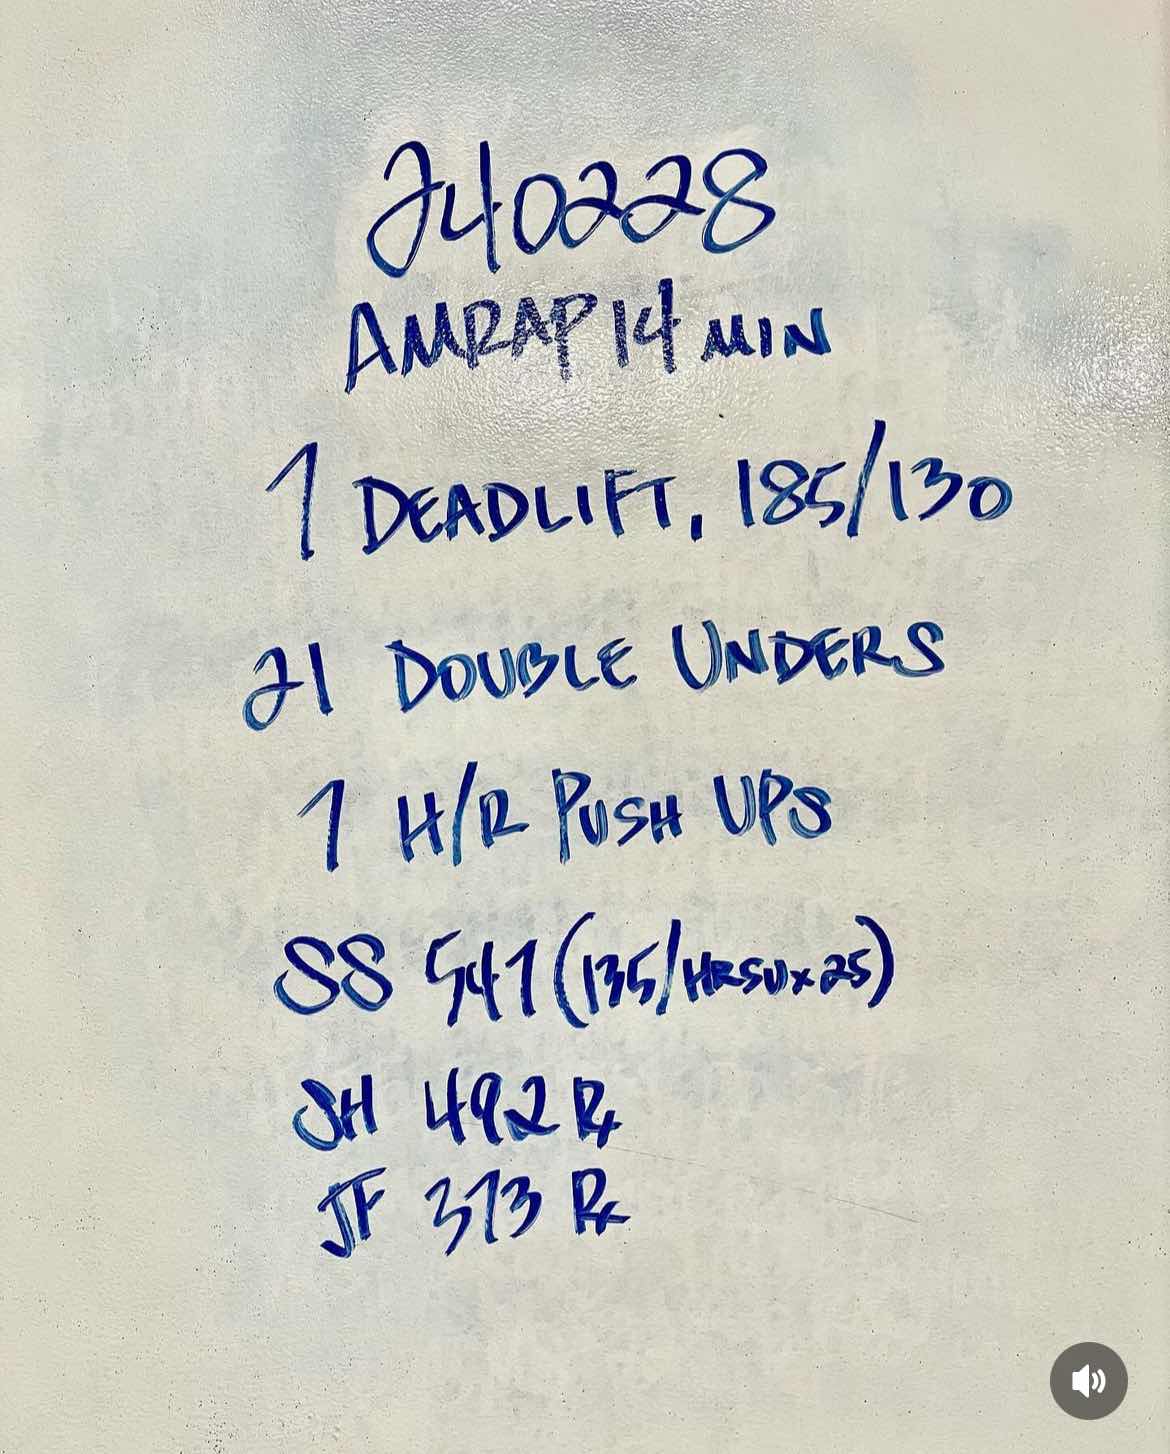 240228
AMRAP 14 MIN
7 DEADLIFT, 185/130
21 DOUBLE UNDERS
7 H/R PUSH UPS
SS 547 (135/HRSUx25)
SH 492 Rx
JF 373 Rx